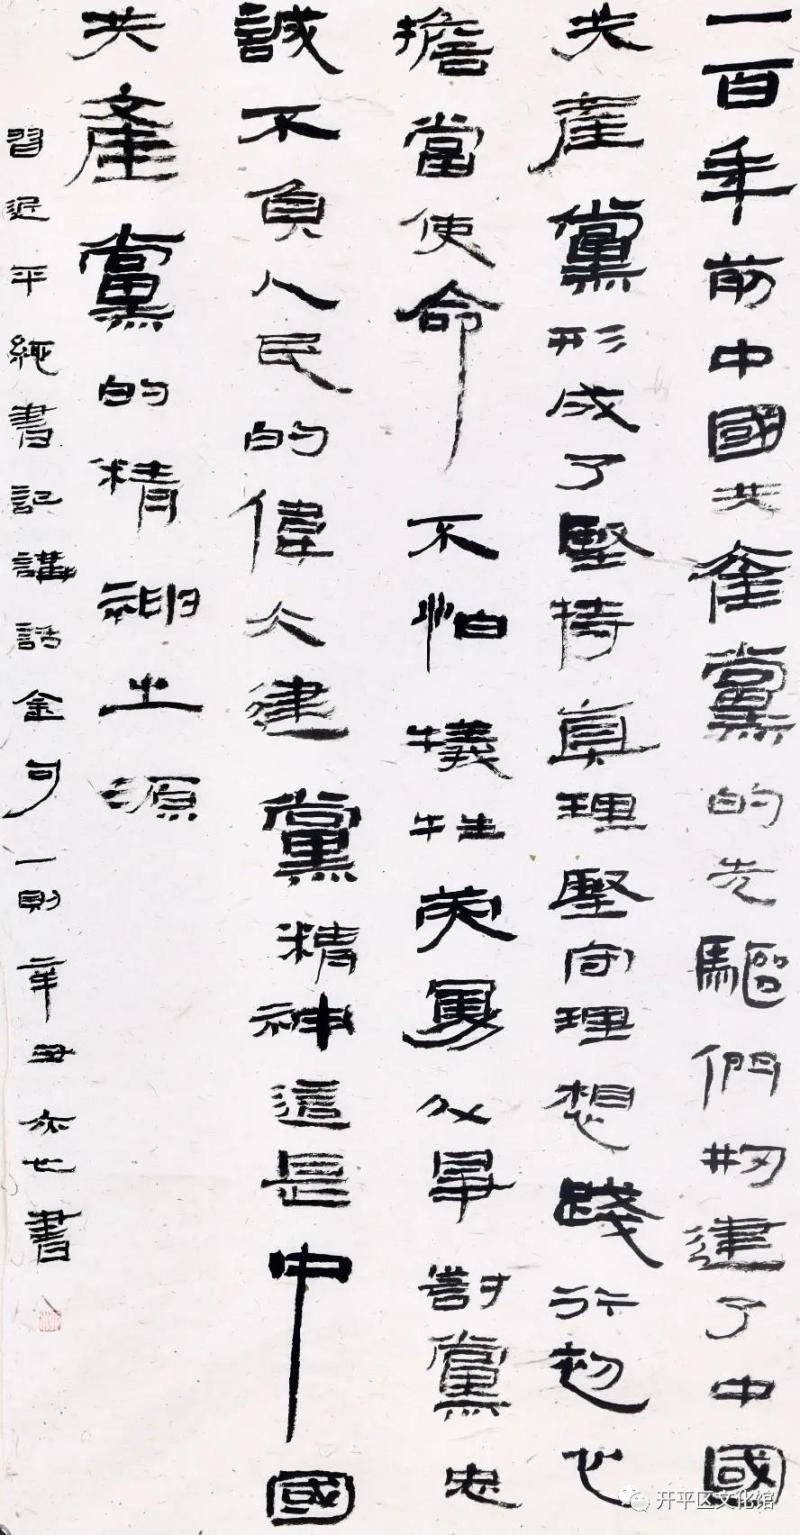 一百年前中國共產黨的先驅們刱建了中國
共產黨形成了堅持真理堅守理想踐行初心
擔當使命不怕犧牲英勇斗爭對黨忠
誠不負人民的偉大建黨精神這是中國
共產黨的精神之源
習近平總書記講話金句一則辛丑亦書
开平区文化馆